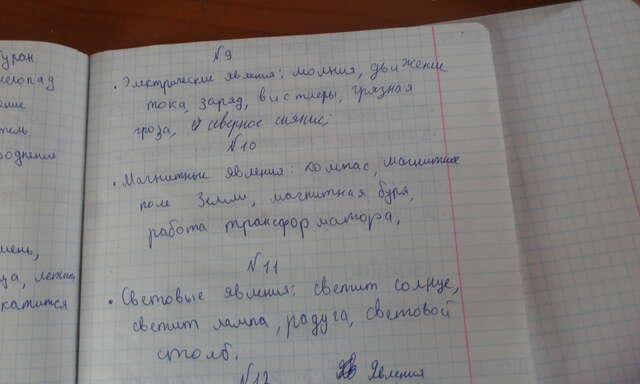 уран
№9
• Электрические явления: молния, движение
тока, заряд, вистлеры, грязная
гроза, северное сияние;
№10
• Магнитные явления: компас, магнитное
поле Земли, магнитная буря,
работа трансформатора.
№11
• Световые явления: светит солнце,
светит лампа, радуга, световой
столб.
№12 Явления
мень,
ца,
катится